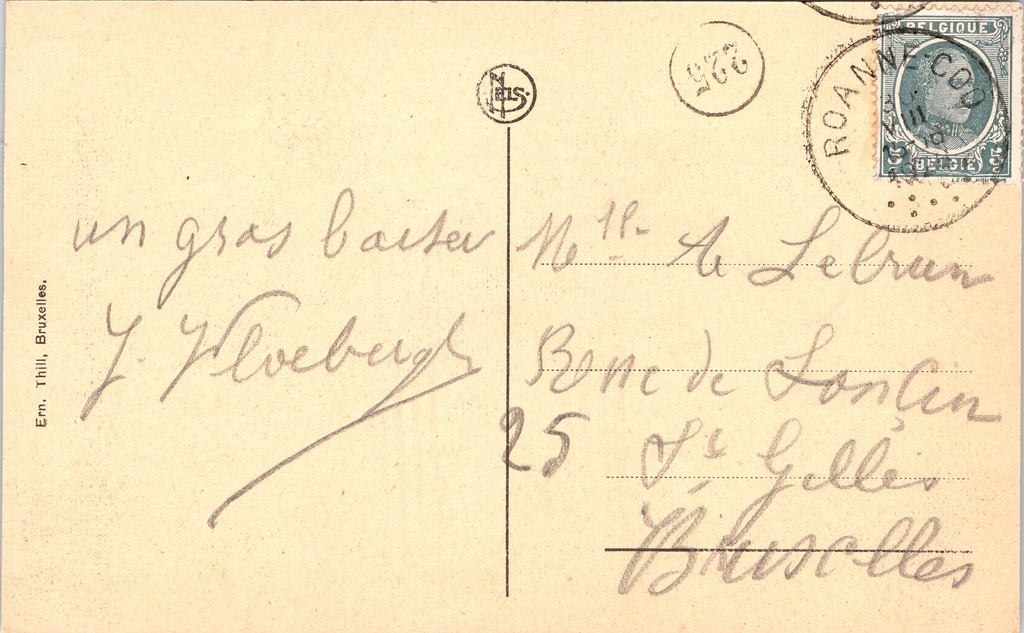 Ern. Thill, Bruxelles.
un gros baiser
J. Vloebergh
NELS.
225
BELGIQUE
5 BELGIË 5
ROANNE-COO
VIII
Mlle A Lebrun
de
25
St Gilles
Bruxelles